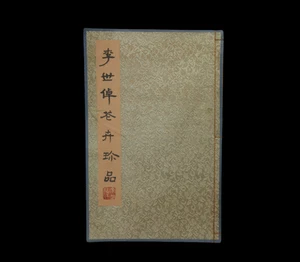 李世倬花卉珍品